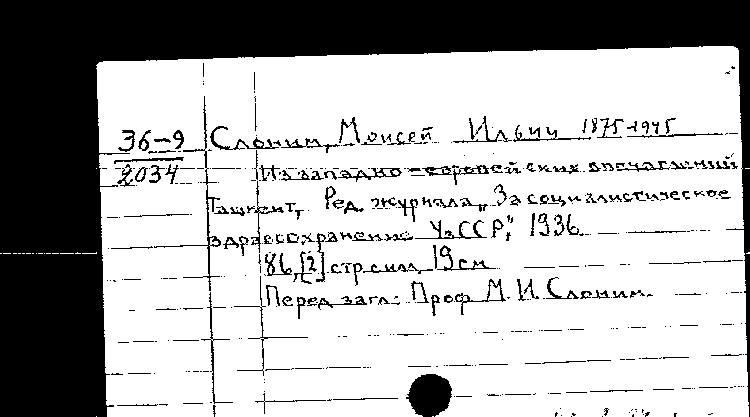 36-9
2034
Слоним, Моисей Ильич 1875-1945
Из западно-европейских впечатлений
Ташкент, Ред. журнала „За социалистическое
здравоохранение УзССР", 1936.
86, [2] стр. с илл. 19 см
Перед загл.: Проф. М. И. Слоним.